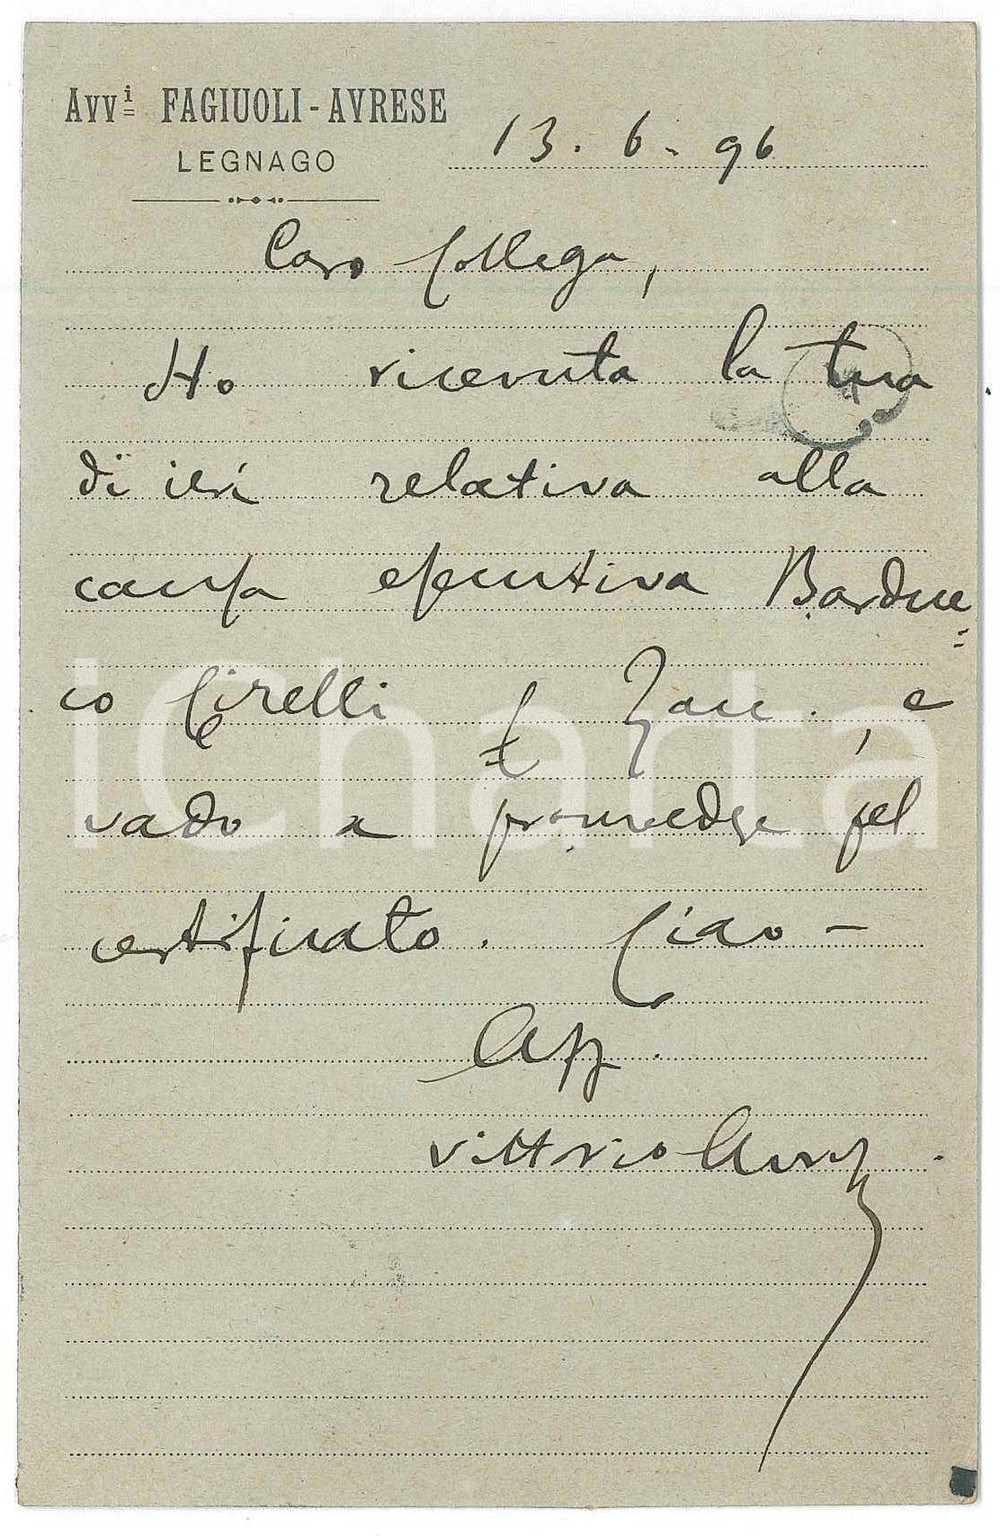 Avvⁱ FAGIUOLI - AVRESE
LEGNAGO
13. 6. 96
Caro Collega,
Ho ricevuta la tua
di ieri relativa alla
causa esecutiva Bardue=
co Cirelli e Zan. , e
vado a provvedere pel
certificato. Ciao -
Aff.
Vittorio Avrese
iCharta